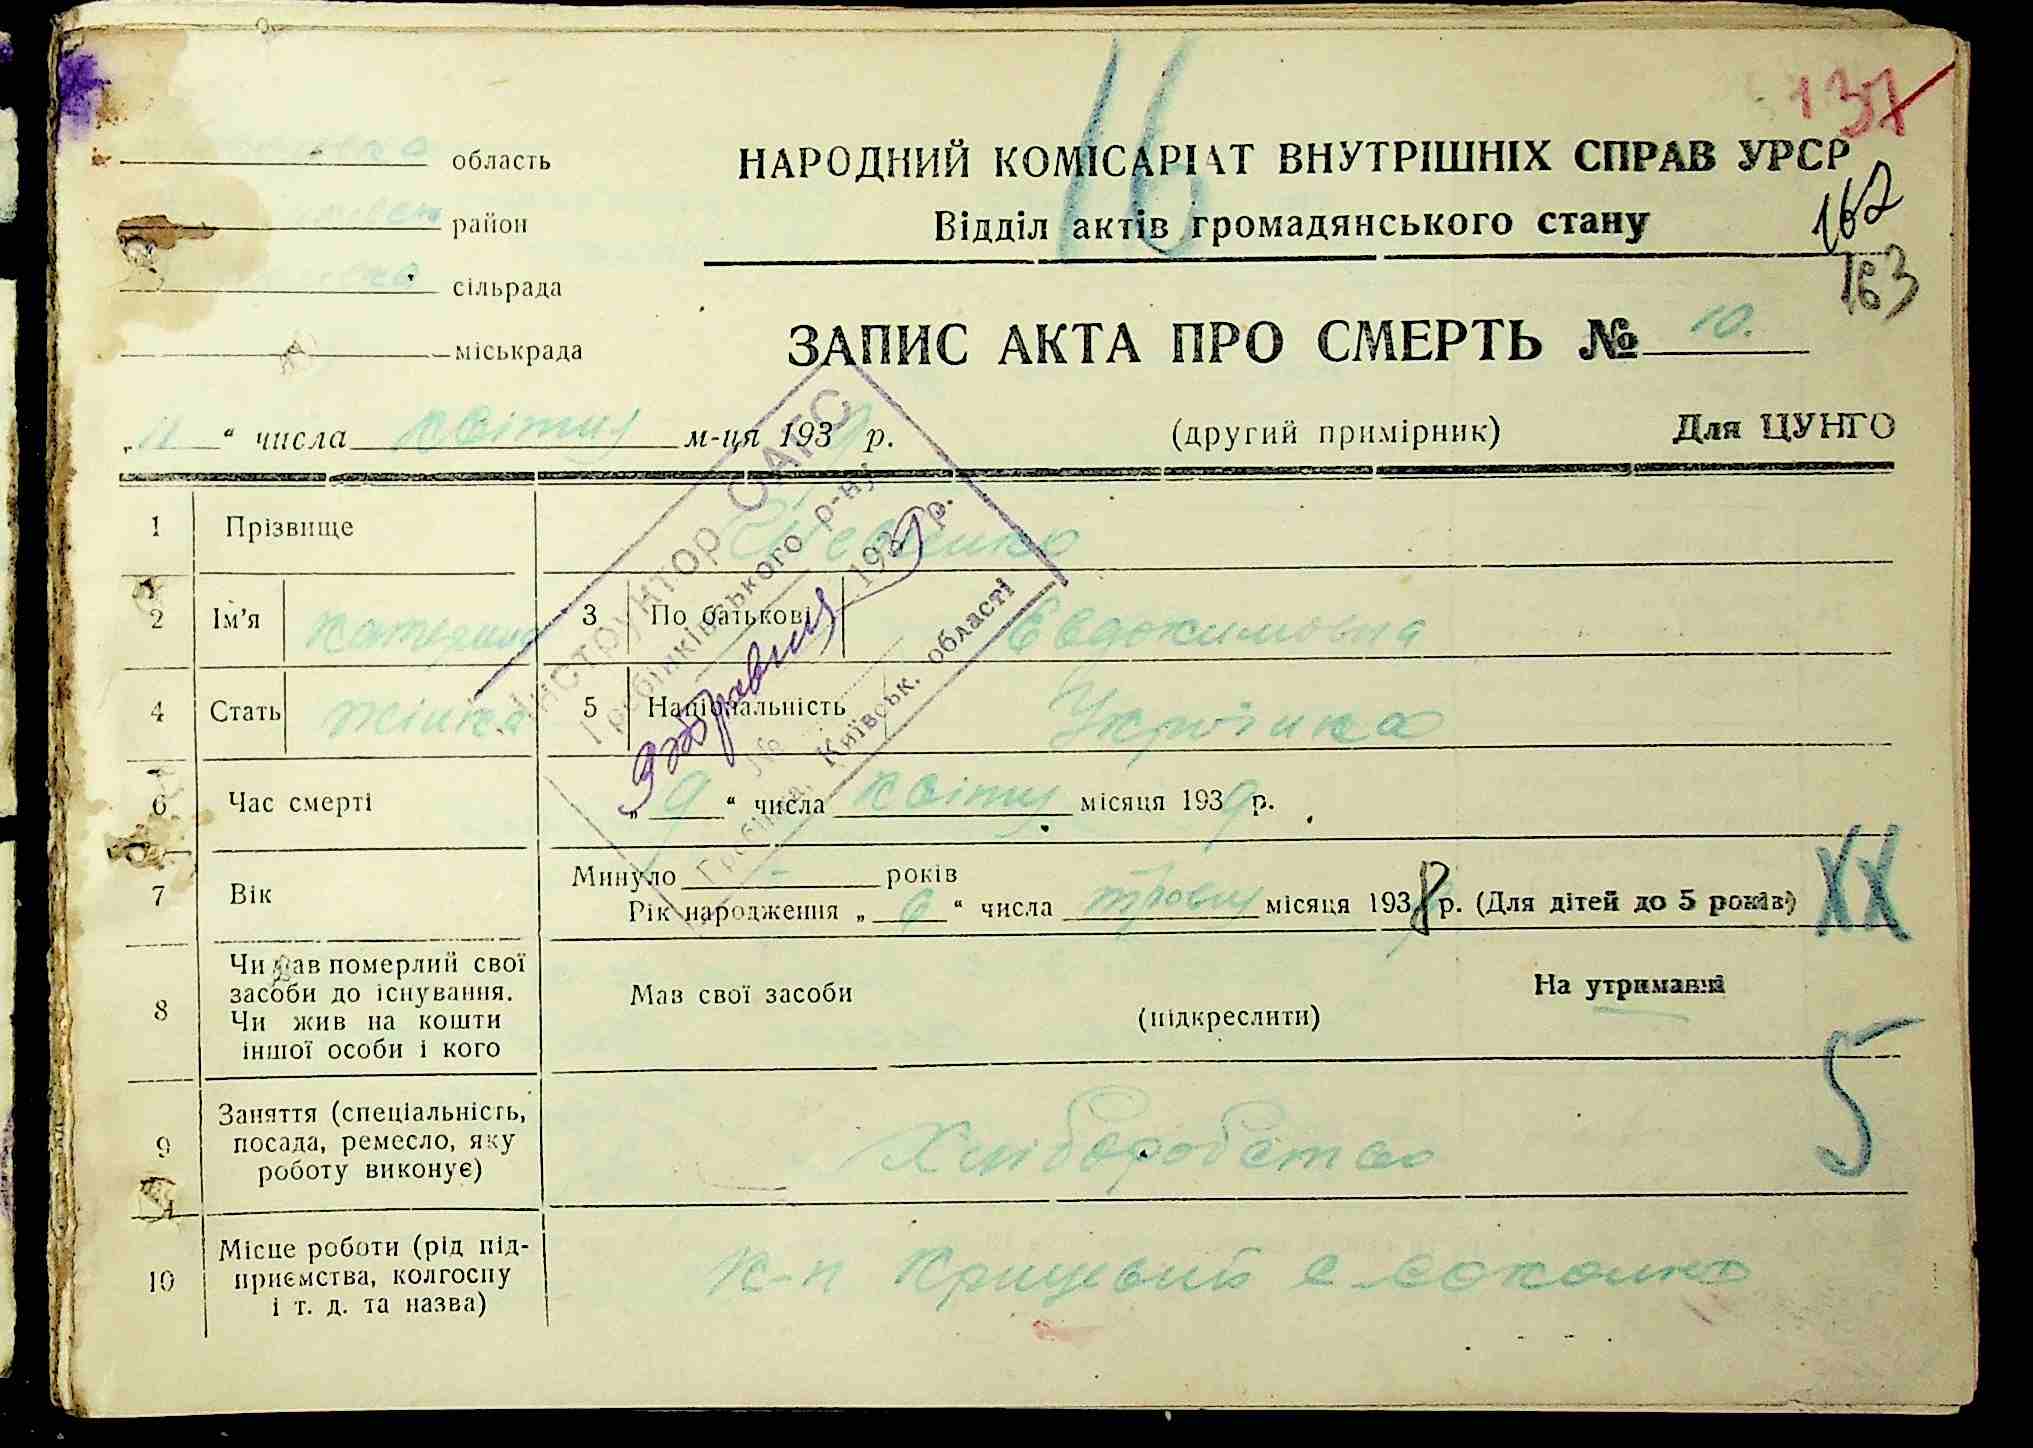 16
137
область
НАРОДНИЙ КОМІСАРІАТ ВНУТРІШНІХ СПРАВ УРСР
162
район
Відділ актів громадянського стану
163
сільрада
міськрада
ЗАПИС АКТА ПРО СМЕРТЬ № 10.
„11“ числа квітня м-ця 1939 р.
(другий примірник)
Для ЦУНГО
Інструктор ОАГС
Гребінківського р-ну
1939 р.
№
Гребінка, Київськ. області
1 Прізвище
2 Ім'я Катерина 3 По батькові Евдокимовна
4 Стать жінка 5 Національність Украінка
6 Час смерті „9“ числа квітня місяця 1939 р.
7 Вік Минуло - років
Рік народження „6“ числа травня місяця 1938 р. (Для дітей до 5 років)
XX
8 Чи мав померлий свої засоби до існування. Чи жив на кошти іншої особи і кого
Мав свої засоби
(підкреслити)
На утриманні
5
9 Заняття (спеціальність, посада, ремесло, яку роботу виконує)
Хліборобство
10 Місце роботи (рід підприємства, колгоспу і т. д. та назва)
к-п